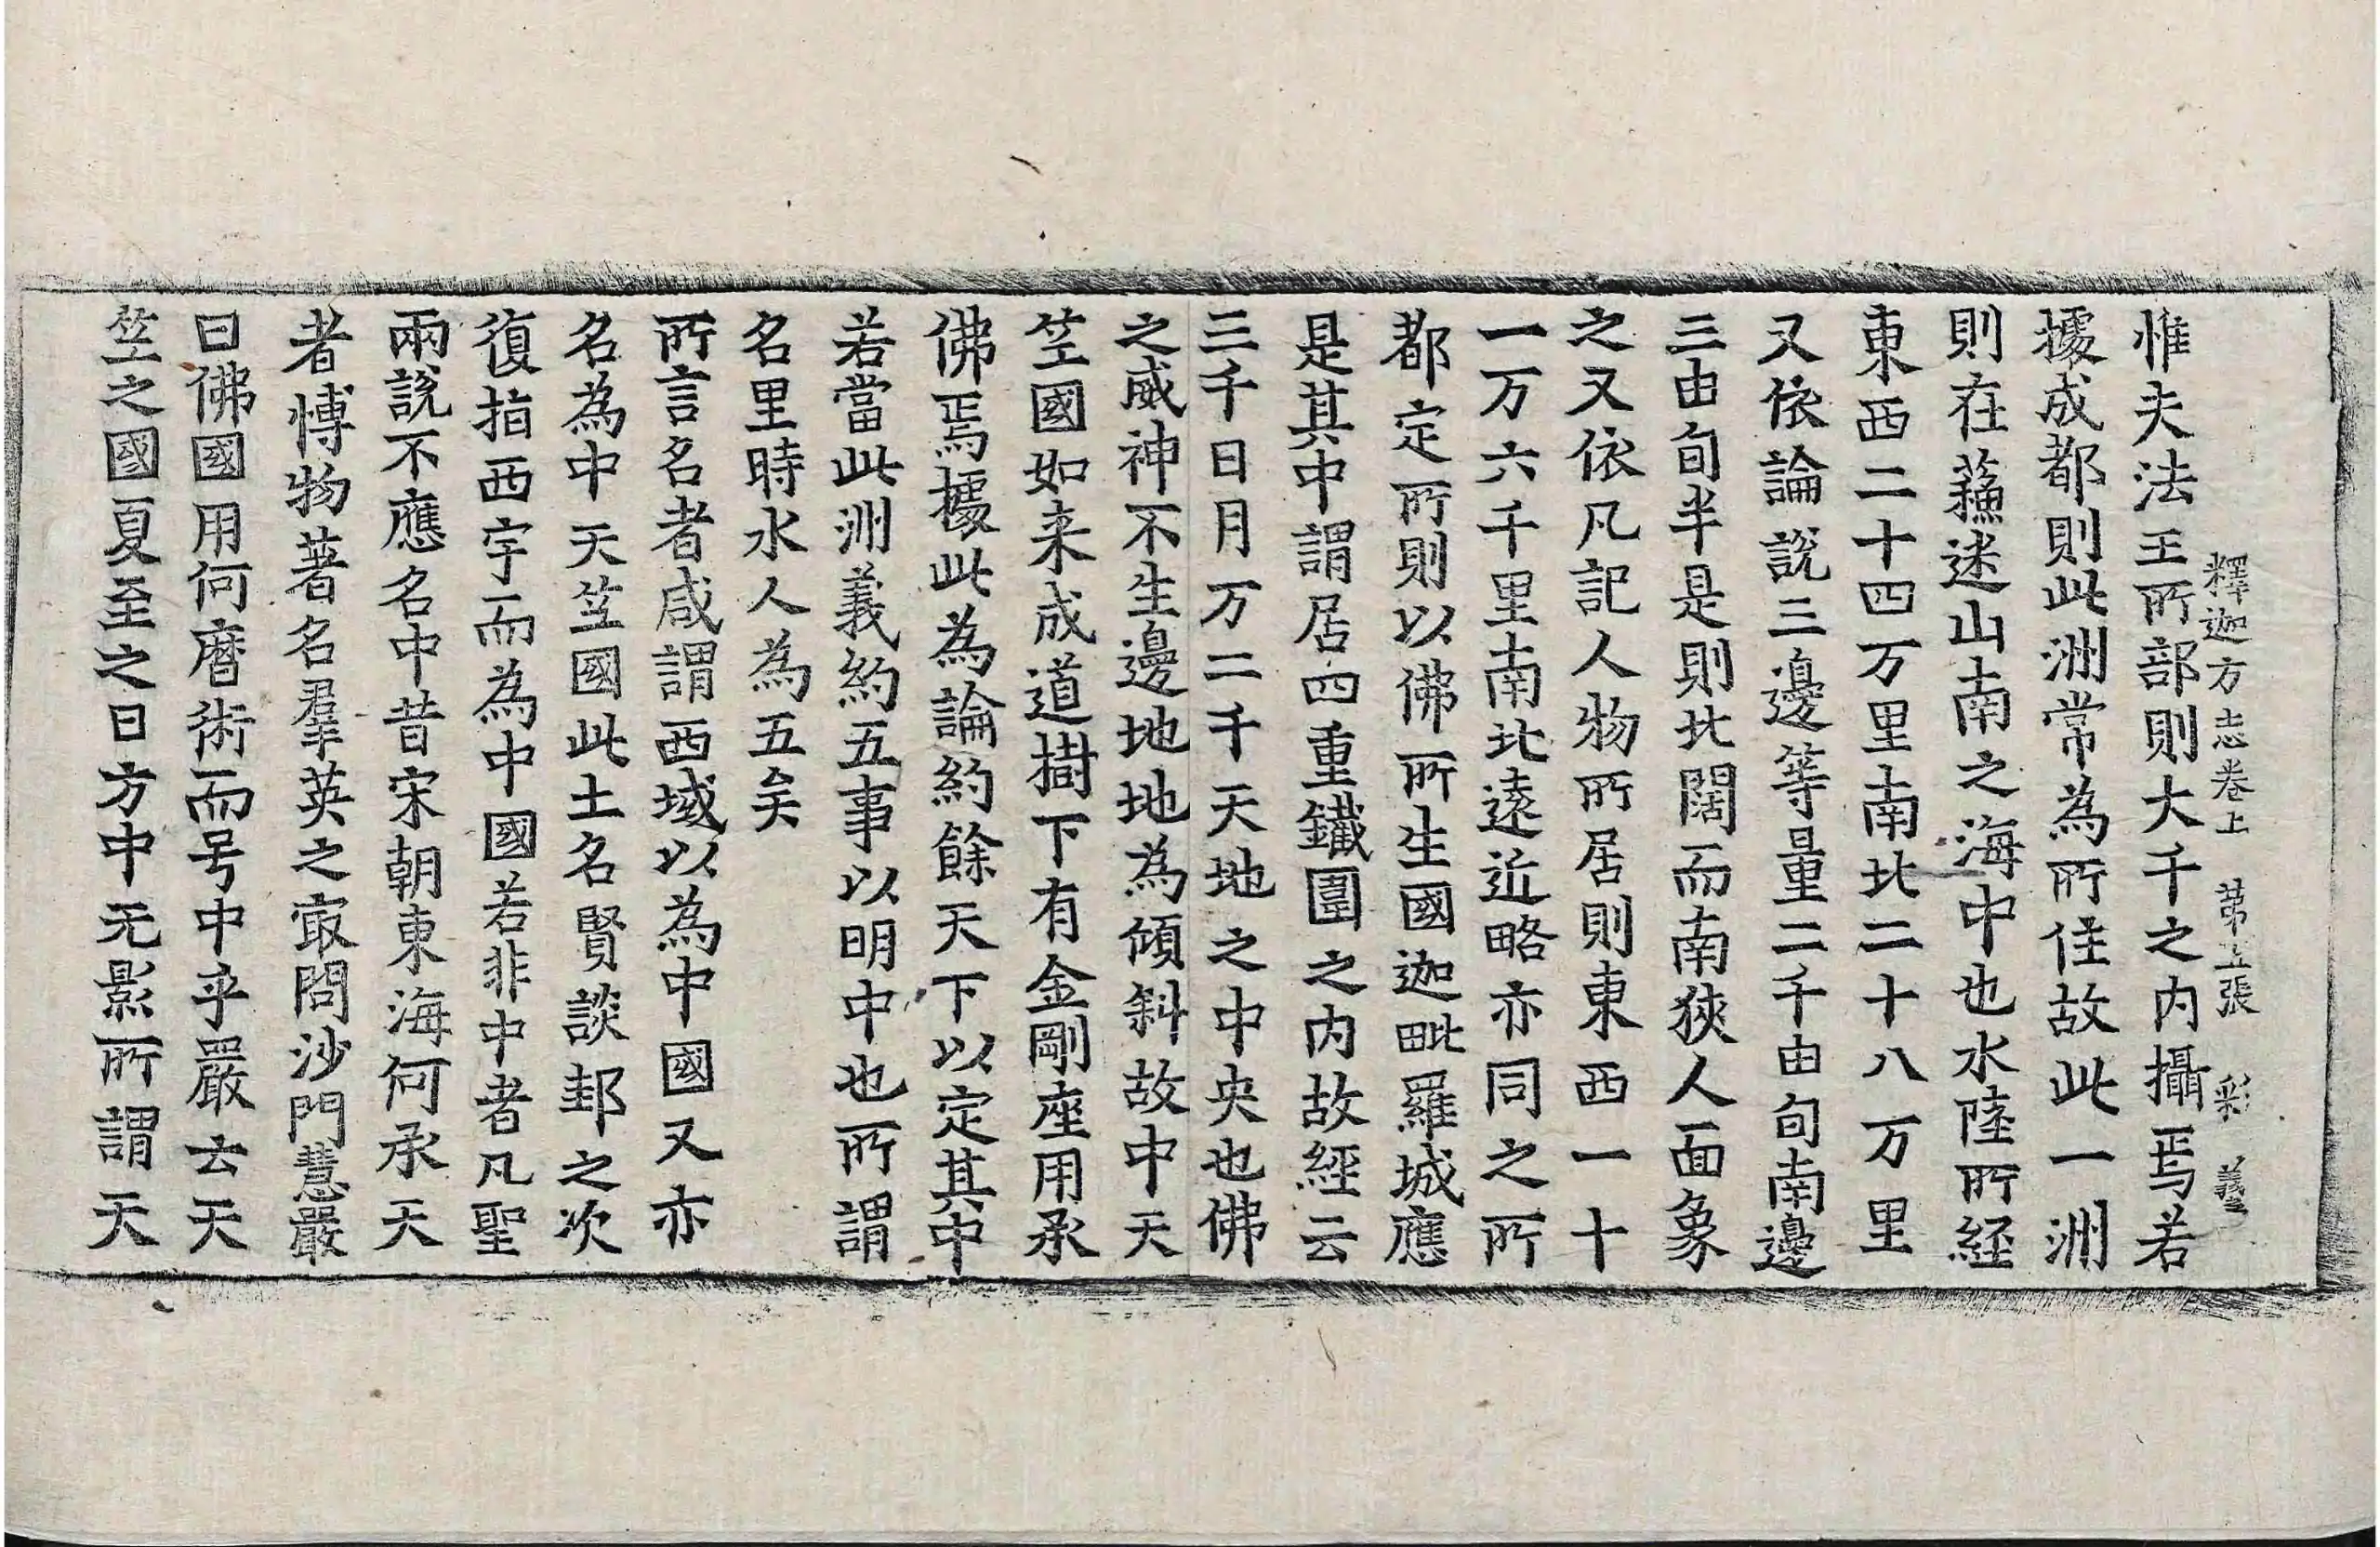 釋迦方志卷上　第五張　彩　義
惟夫法王所部則大千之内攝焉若
據成都則此洲常為所住故此一洲
則在蘓迷山南之海中也水陸所経
東西二十四万里南北二十八万里
又依論說三邊等量二千由旬南邊
三由旬半是則北闊而南狹人面象
之又依凡記人物所居則東西一十
一万六千里南北遠近略亦同之所
都定所則以佛所生國迦毗羅城應
是其中謂居四重鐵圍之内故經云
三千日月万二千天地之中央也佛
之威神不生邊地地為傾斜故中天
笁國如来成道樹下有金剛座用承
佛焉據此為論約餘天下以定其中
若當此洲義約五事以明中也所謂
名里時水人為五矣
所言名者咸謂西域以為中國又亦
名為中天笁國此土名賢談邽之次
復指西宇而為中國若非中者凡聖
兩說不應名中昔宋朝東海何承天
者愽物著名羣英之㝡問沙門慧嚴
曰佛國用何曆術而号中乎嚴云天
笁之國夏至之日方中无影所謂天